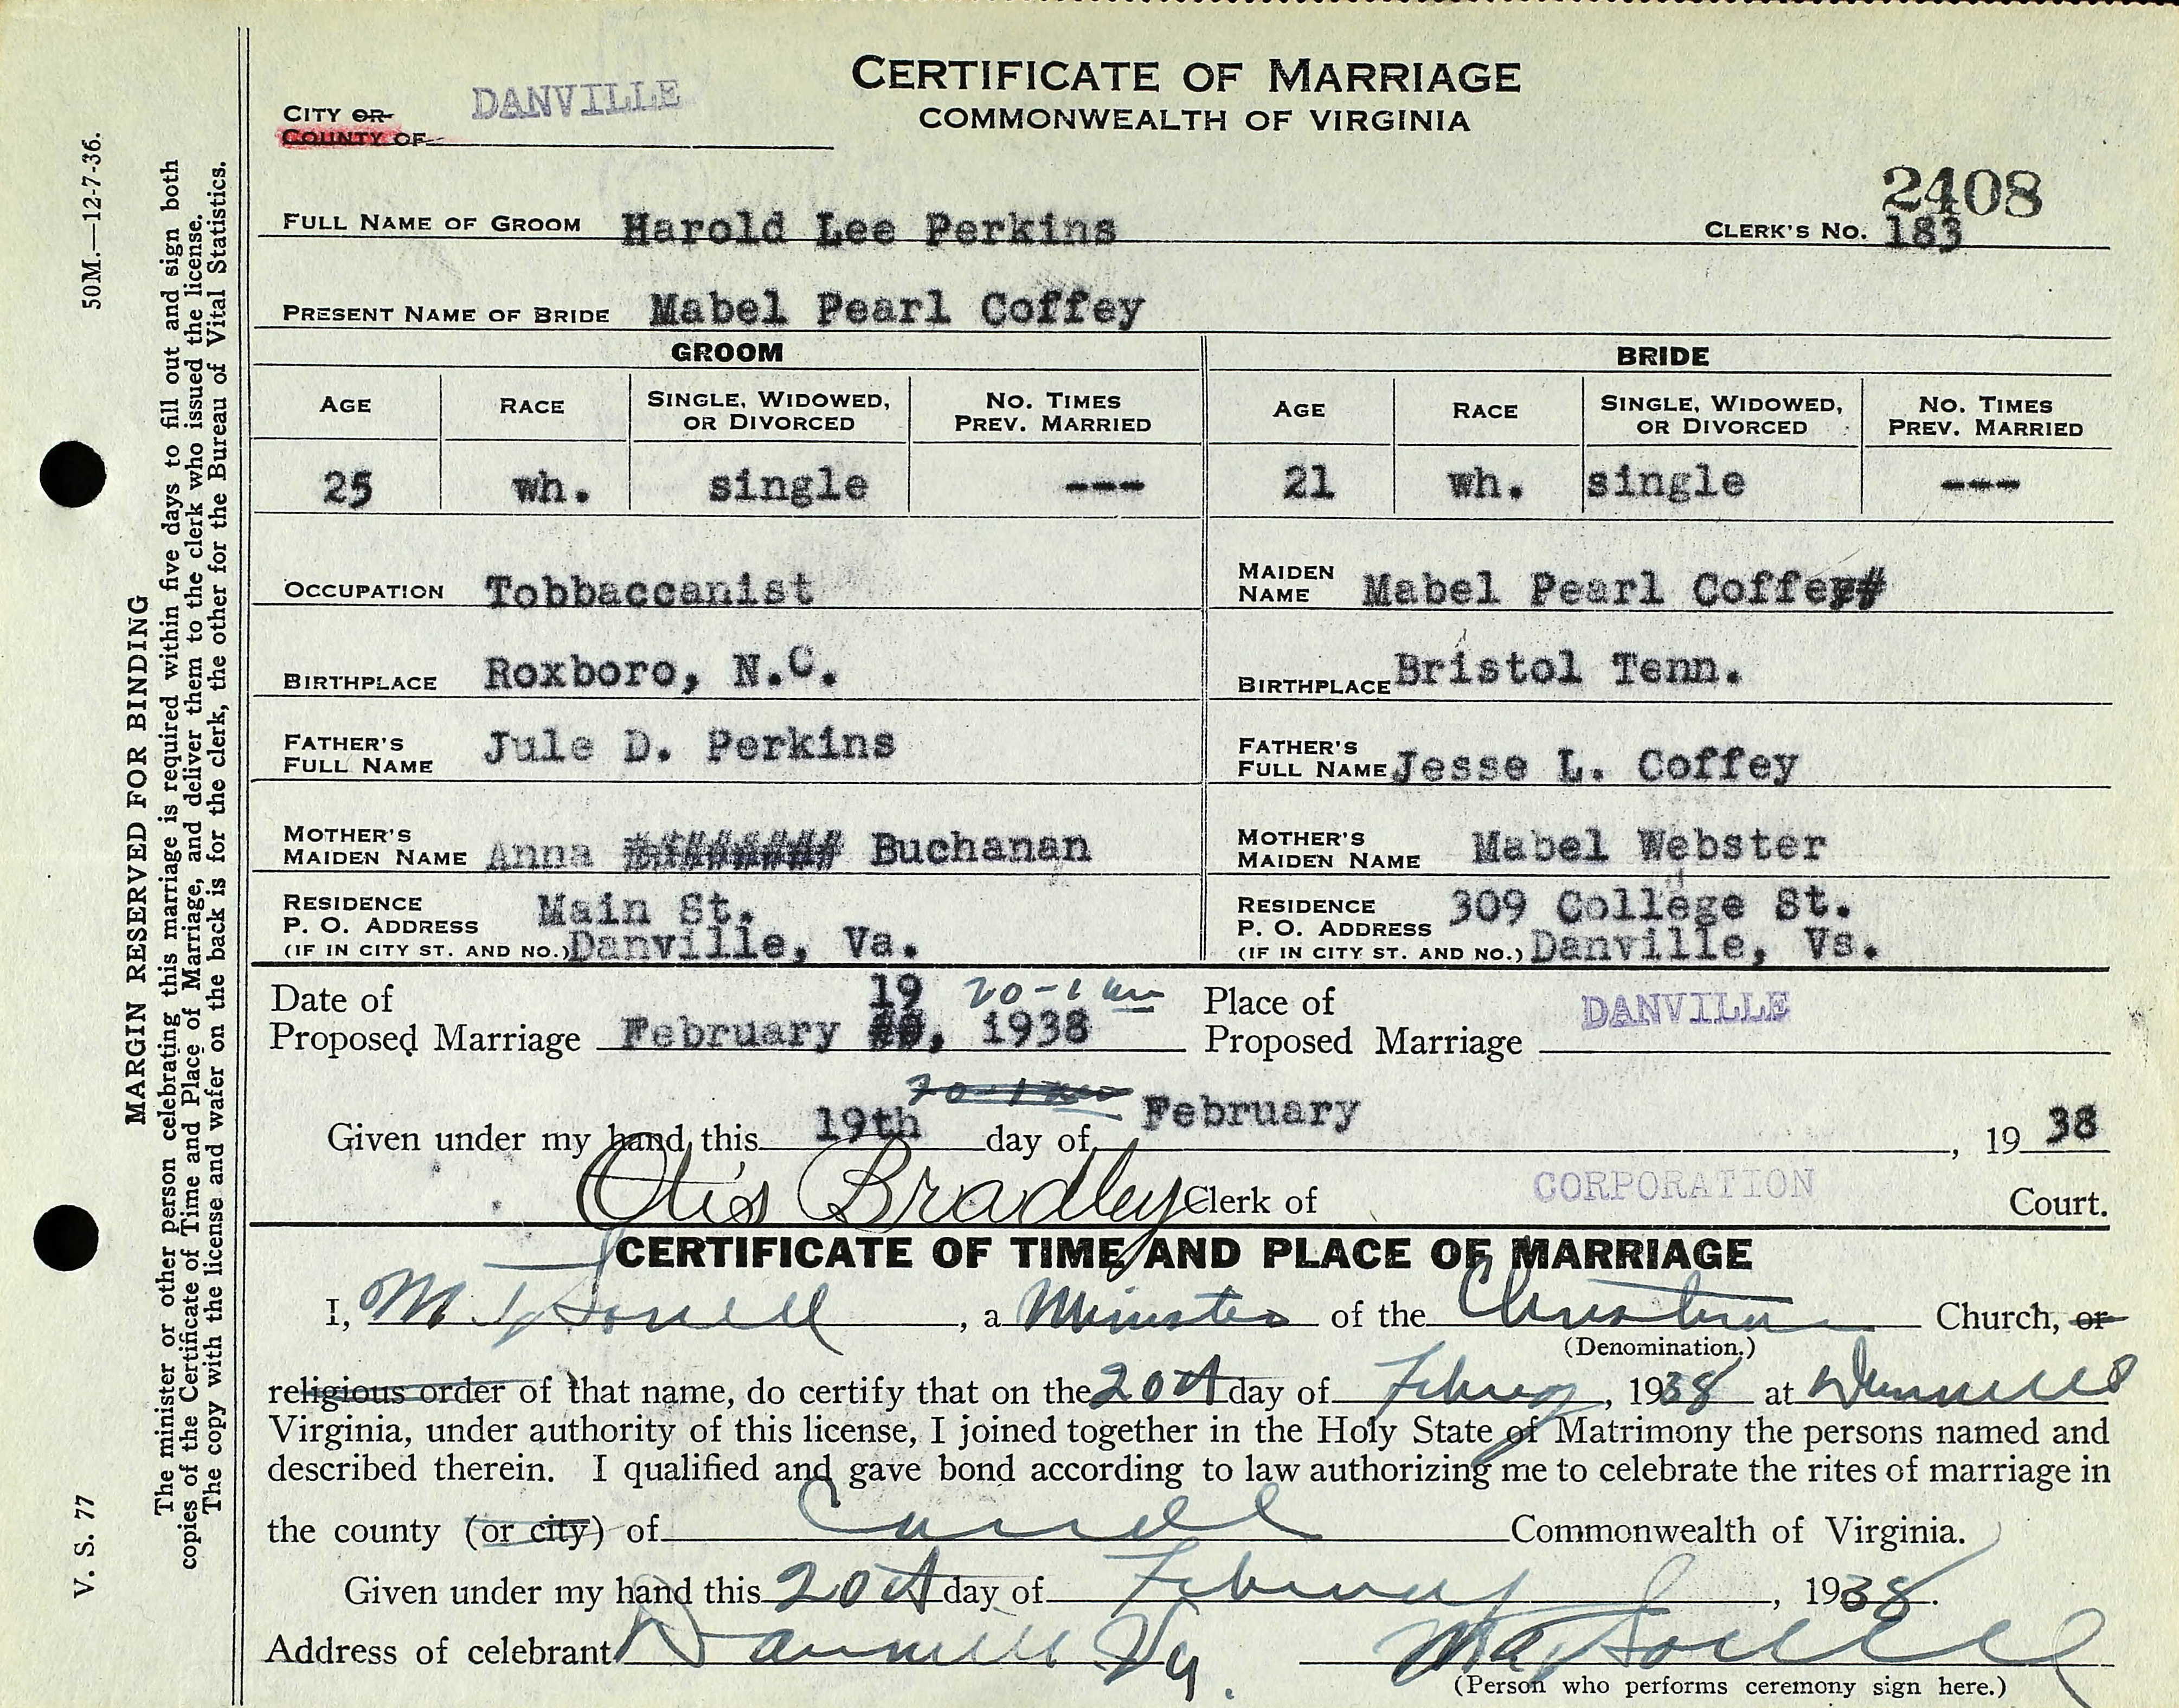 CERTIFICATE OF MARRIAGE
COMMONWEALTH OF VIRGINIA
CITY OR DANVILLE
COUNTY OF
2408
FULL NAME OF GROOM Harold Lee Perkins CLERK'S NO. 183
PRESENT NAME OF BRIDE Mabel Pearl Coffey
GROOM BRIDE
AGE RACE SINGLE, WIDOWED, OR DIVORCED NO. TIMES PREV. MARRIED AGE RACE SINGLE, WIDOWED, OR DIVORCED NO. TIMES PREV. MARRIED
25 wh. single --- 21 wh. single ---
OCCUPATION Tobbaccanist
MAIDEN NAME Mabel Pearl Coffey#
BIRTHPLACE Roxboro, N.C.
BIRTHPLACE Bristol Tenn.
FATHER'S FULL NAME Jule D. Perkins
FATHER'S FULL NAME Jesse L. Coffey
MOTHER'S MAIDEN NAME Anna ######## Buchanan
MOTHER'S MAIDEN NAME Mabel Webster
RESIDENCE Main St.
P. O. ADDRESS
(IF IN CITY ST. AND NO.) Danville, Va.
RESIDENCE 309 College St.
P. O. ADDRESS
(IF IN CITY ST. AND NO.) Danville, Vs.
Date of 19 20-1 am
Proposed Marriage February ##, 1938
Place of
Proposed Marriage DANVILLE
Given under my hand this 19th day of February, 1938
Otis Bradley Clerk of CORPORATION Court.
CERTIFICATE OF TIME AND PLACE OF MARRIAGE
I, M. T. Sorrell, a Minister of the Christian Church, or
(Denomination.)
religious order of that name, do certify that on the 20th day of Februy, 1938 at Danville
Virginia, under authority of this license, I joined together in the Holy State of Matrimony the persons named and
described therein. I qualified and gave bond according to law authorizing me to celebrate the rites of marriage in
the county (or city) of Commonwealth of Virginia.
Given under my hand this 20th day of February, 1938.
Address of celebrant Danville Va. M. T. Sorrell
(Person who performs ceremony sign here.)
50M.—12-7-36.
MARGIN RESERVED FOR BINDING
The minister or other person celebrating this marriage is required within five days to fill out and sign both
copies of the Certificate of Time and Place of Marriage, and deliver them to the clerk who issued the license.
The copy with the license and wafer on the back is for the clerk, the other for the Bureau of Vital Statistics.
V. S. 77